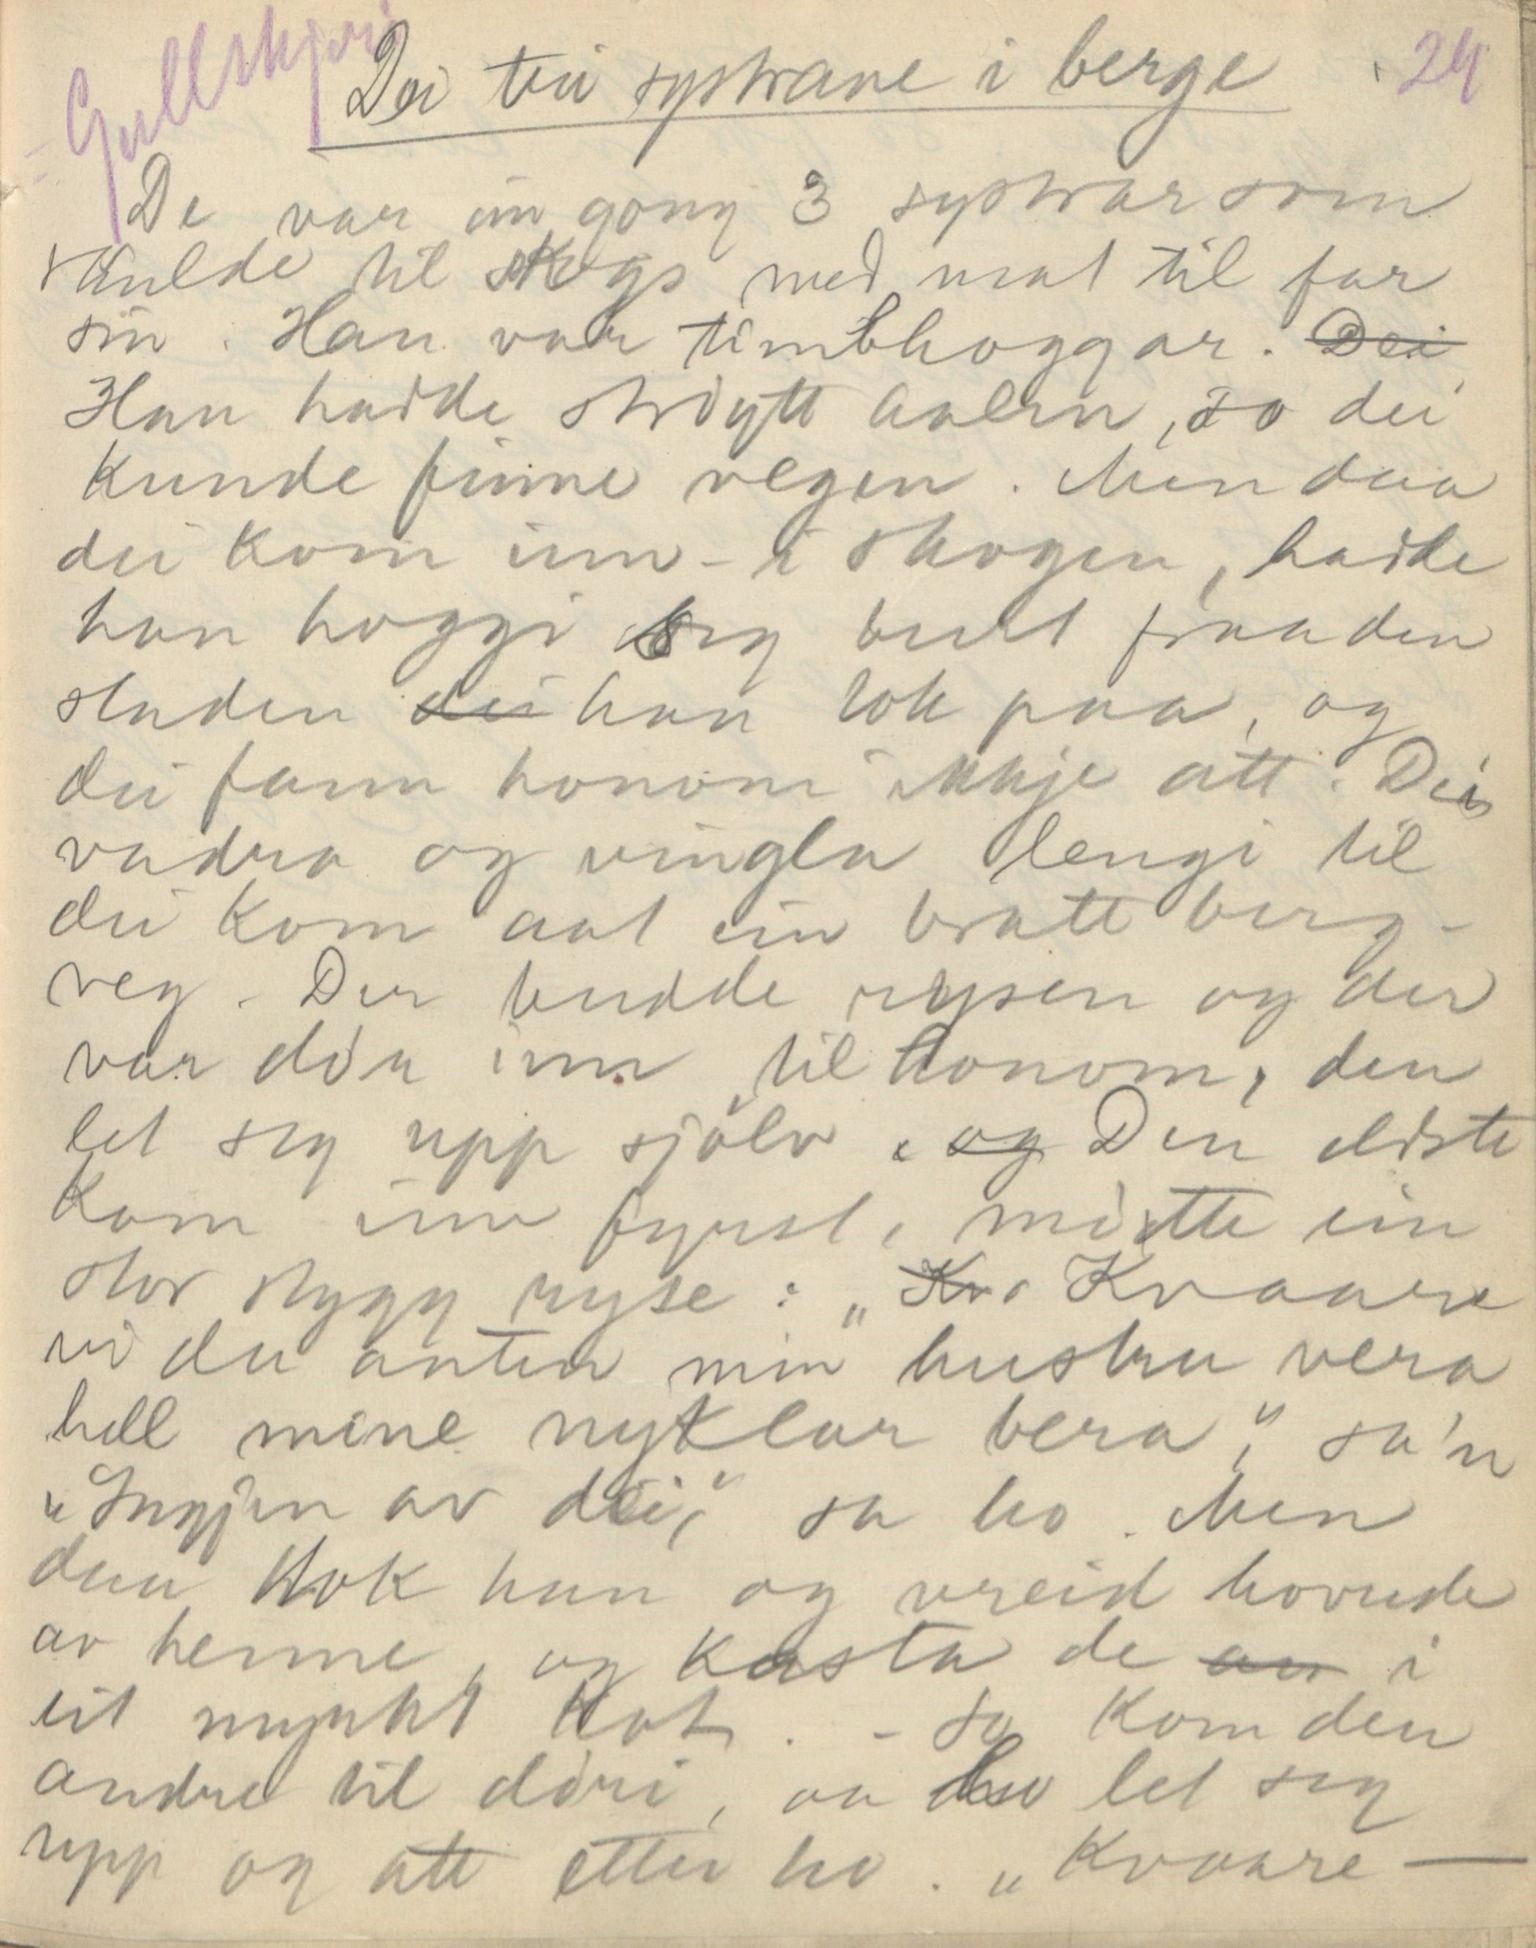 Gullskjeri 24
Dei tri systrane i berge
De var ein gong 3 systrar som
skulde til skogs med mat til far
sin. Han var timbrhoggar. Dei
Han hadde ströytt halm, so dei
kunde finne vegen. Men daa
dei kom inn i skogen, hadde
han hoggi seg burt fraa den
staden dei han tok paa, og
dei fann honom ikkje att. Dei
vadra og vingla lengi til
dei kom aat ein bratt berg-
veg. Der budde rysen og der
var döra inn til honom, den
let seg upp sjölv. og Den eldste
kom inn fyrst, mötte ein
stor stygg ryse: „Kv Kvaare
vi du anten min hustru vera
hell mine nyklar bera", sa'n
„Ingjen av dei," sa ho. Men
daa tok han og vreid hovude
av henne, og kasta de av i
eit myrkt hol. - So kom den
andre til döri, aa ho let seg
upp og att etter ho. „Kvaare —